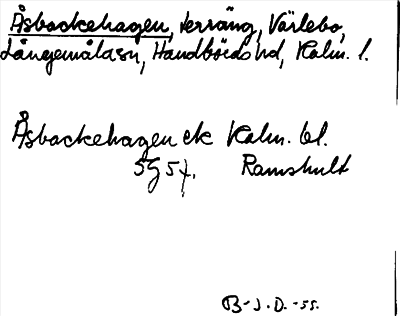 Åsbackehagen, terräng, Värlebo,
Långemåla sn, Handbörds hd, Kalm. l.
Åsbackehagen ek Kalm. bl.
5G 5f. Ramshult
B-J.D.-55.